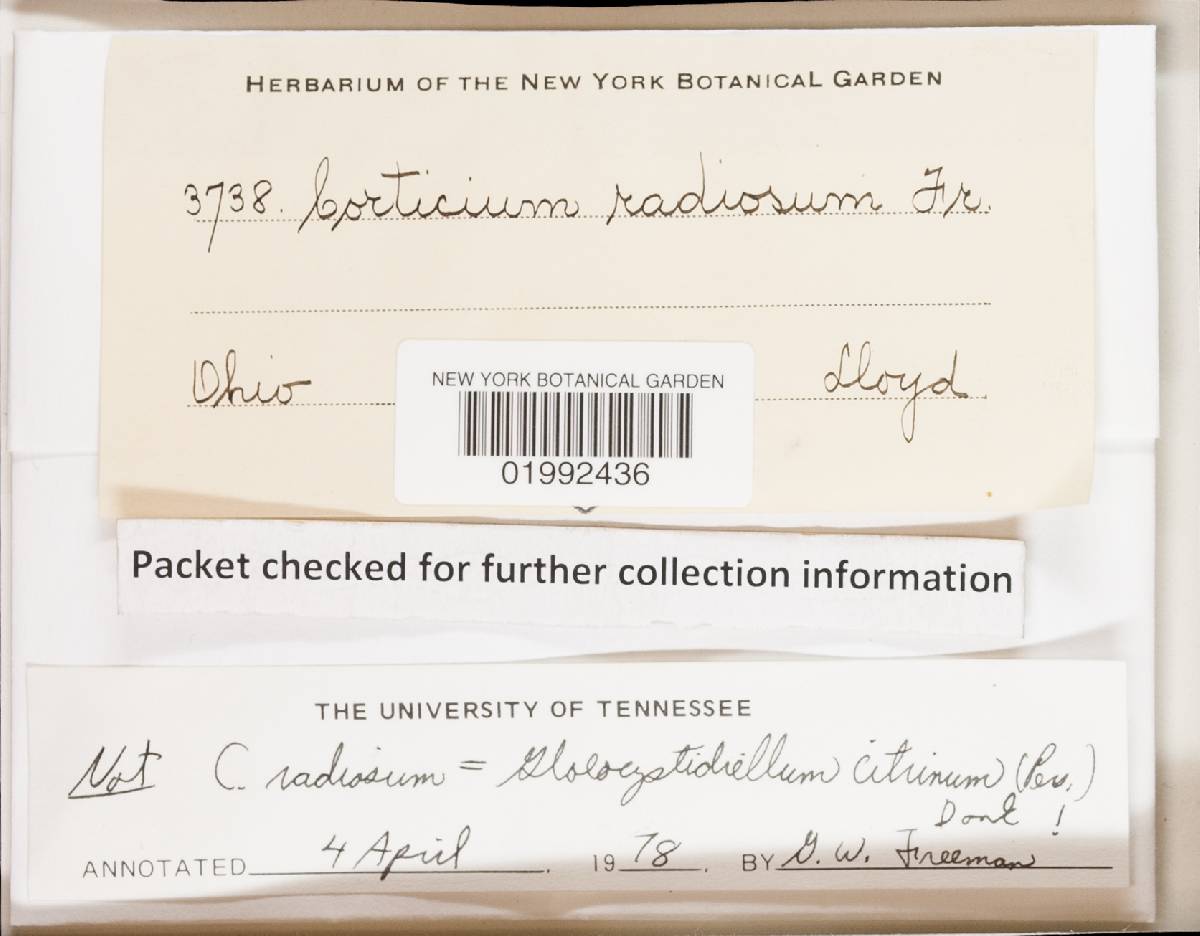 HERBARIUM OF THE NEW YORK BOTANICAL GARDEN
3738. Corticium radiosum Fr.
Ohio
Lloyd
NEW YORK BOTANICAL GARDEN
01992436
Packet checked for further collection information
THE UNIVERSITY OF TENNESSEE
Not C. radiosum = Gloeocystidiellum citrinum (Pers.)
Donk !
ANNOTATED 4 April . 1978 . BY G. W. Freeman